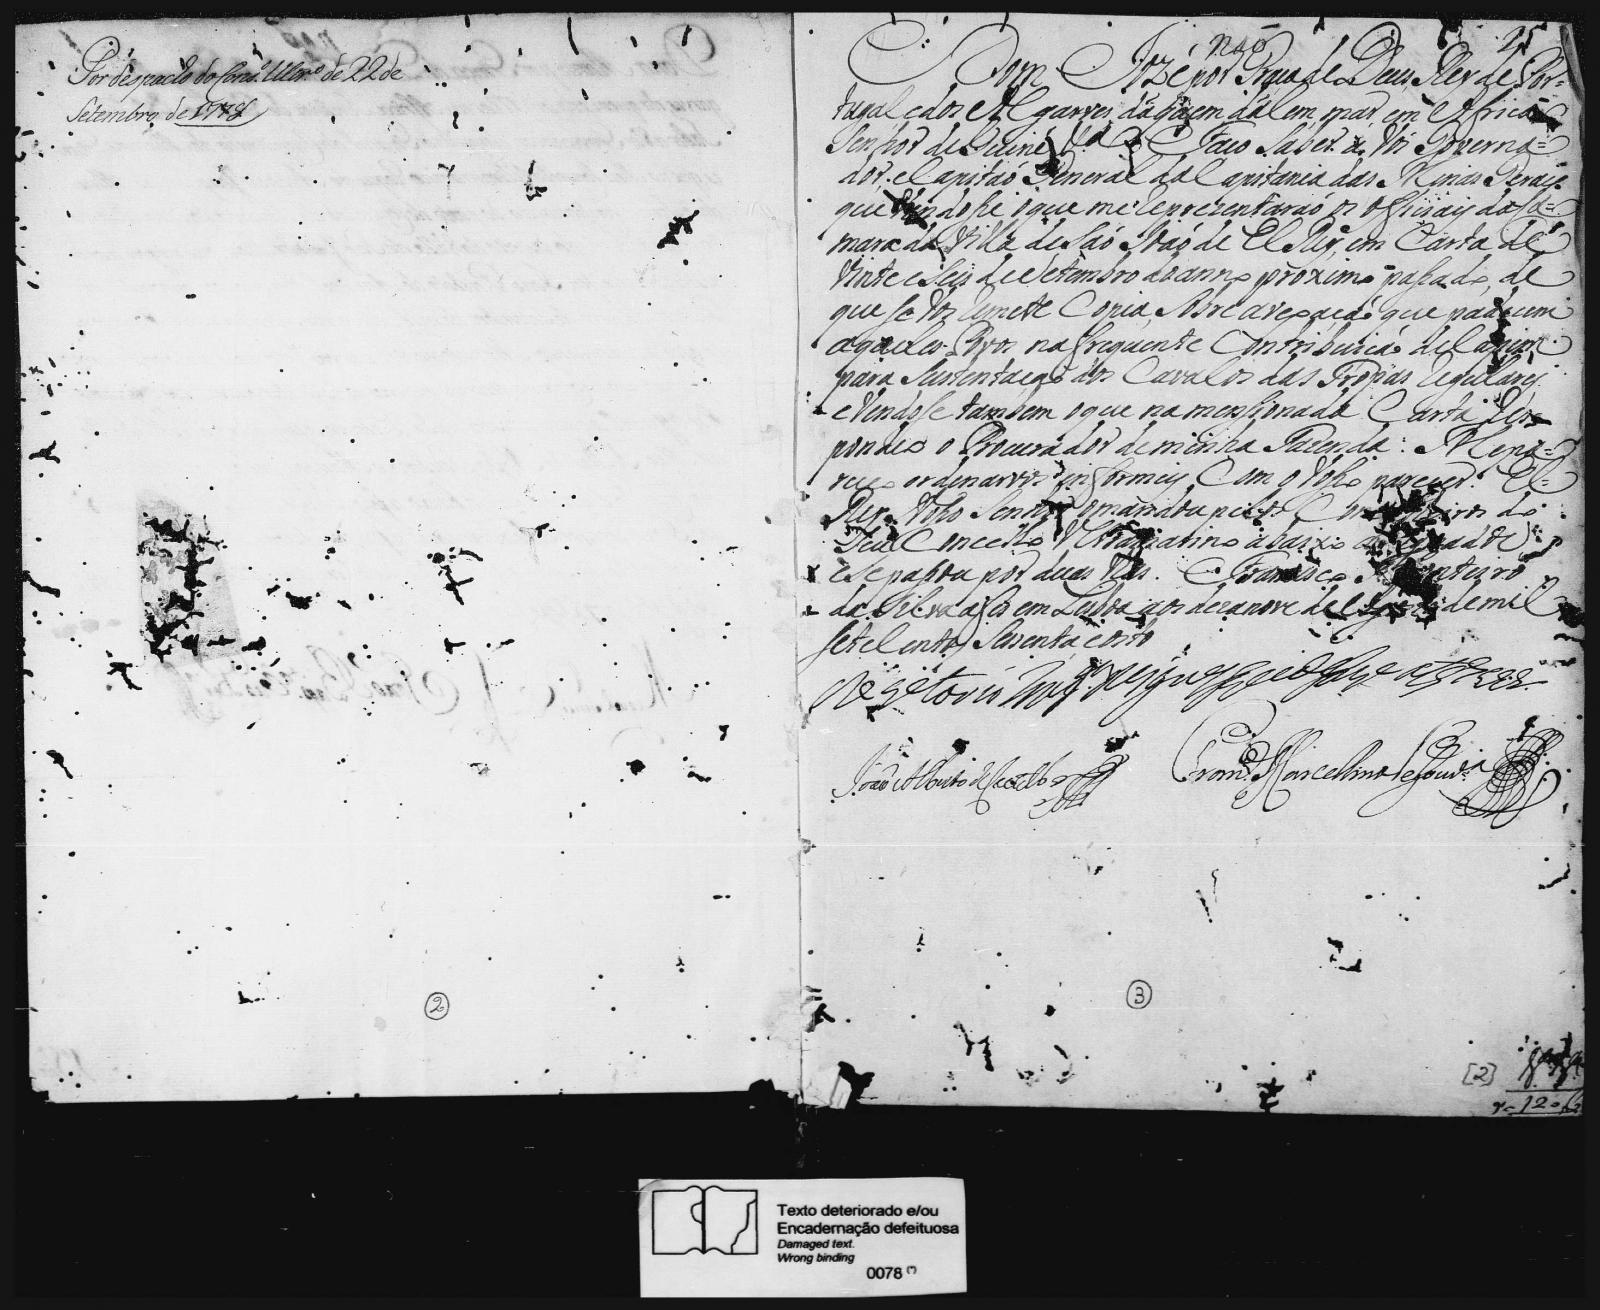 Por despacho do Cons.º Ultr.º de 22 de
Setembro de 1778
não
25
Dom Jozé por Graça de Deus Rey de Por=
tugal e dos Algarves, daquem dalem mar, em Africa
Senhor de Guiné &.ª Faço Saber a Vós Governa=
dor, e Capitão General da Capitania das Minas Geraes
que vendose o que me reprezentarão os officiaes da Ca=
mara da Villa de São João de El Rey, em Carta de
vinte e Seis de Setembro do anno proximo passado, de
que se vos remete Copia, Sobre a vexação que padecem
aquelles Povos na frequente Contribuição de Capim
para Sustentação dos Cavalos das Tropas regullares
e vendose tambem o que na mensionada Carta Res=
pondeo o Procurador de minha Fazenda: Me pa=
receo ordenarvos informeis Com o Vosso parecer. El
Rey Nosso Senhor o mandou pelos Conselheiros do
Seu Concelho Ultramarino abaixo
e se passou por duas vias. Francisco Monteiro
da Silva a fes em Lisboa aos dezanove de de mil
sete Centos Sessenta e oito
João Alberto de Castelbr.co
Fran.co Marcellino de Gouv.a
2
3
[2]
Texto deteriorado e/ou
Encadernação defeituosa
Damaged text.
Wrong binding
0078 (*)